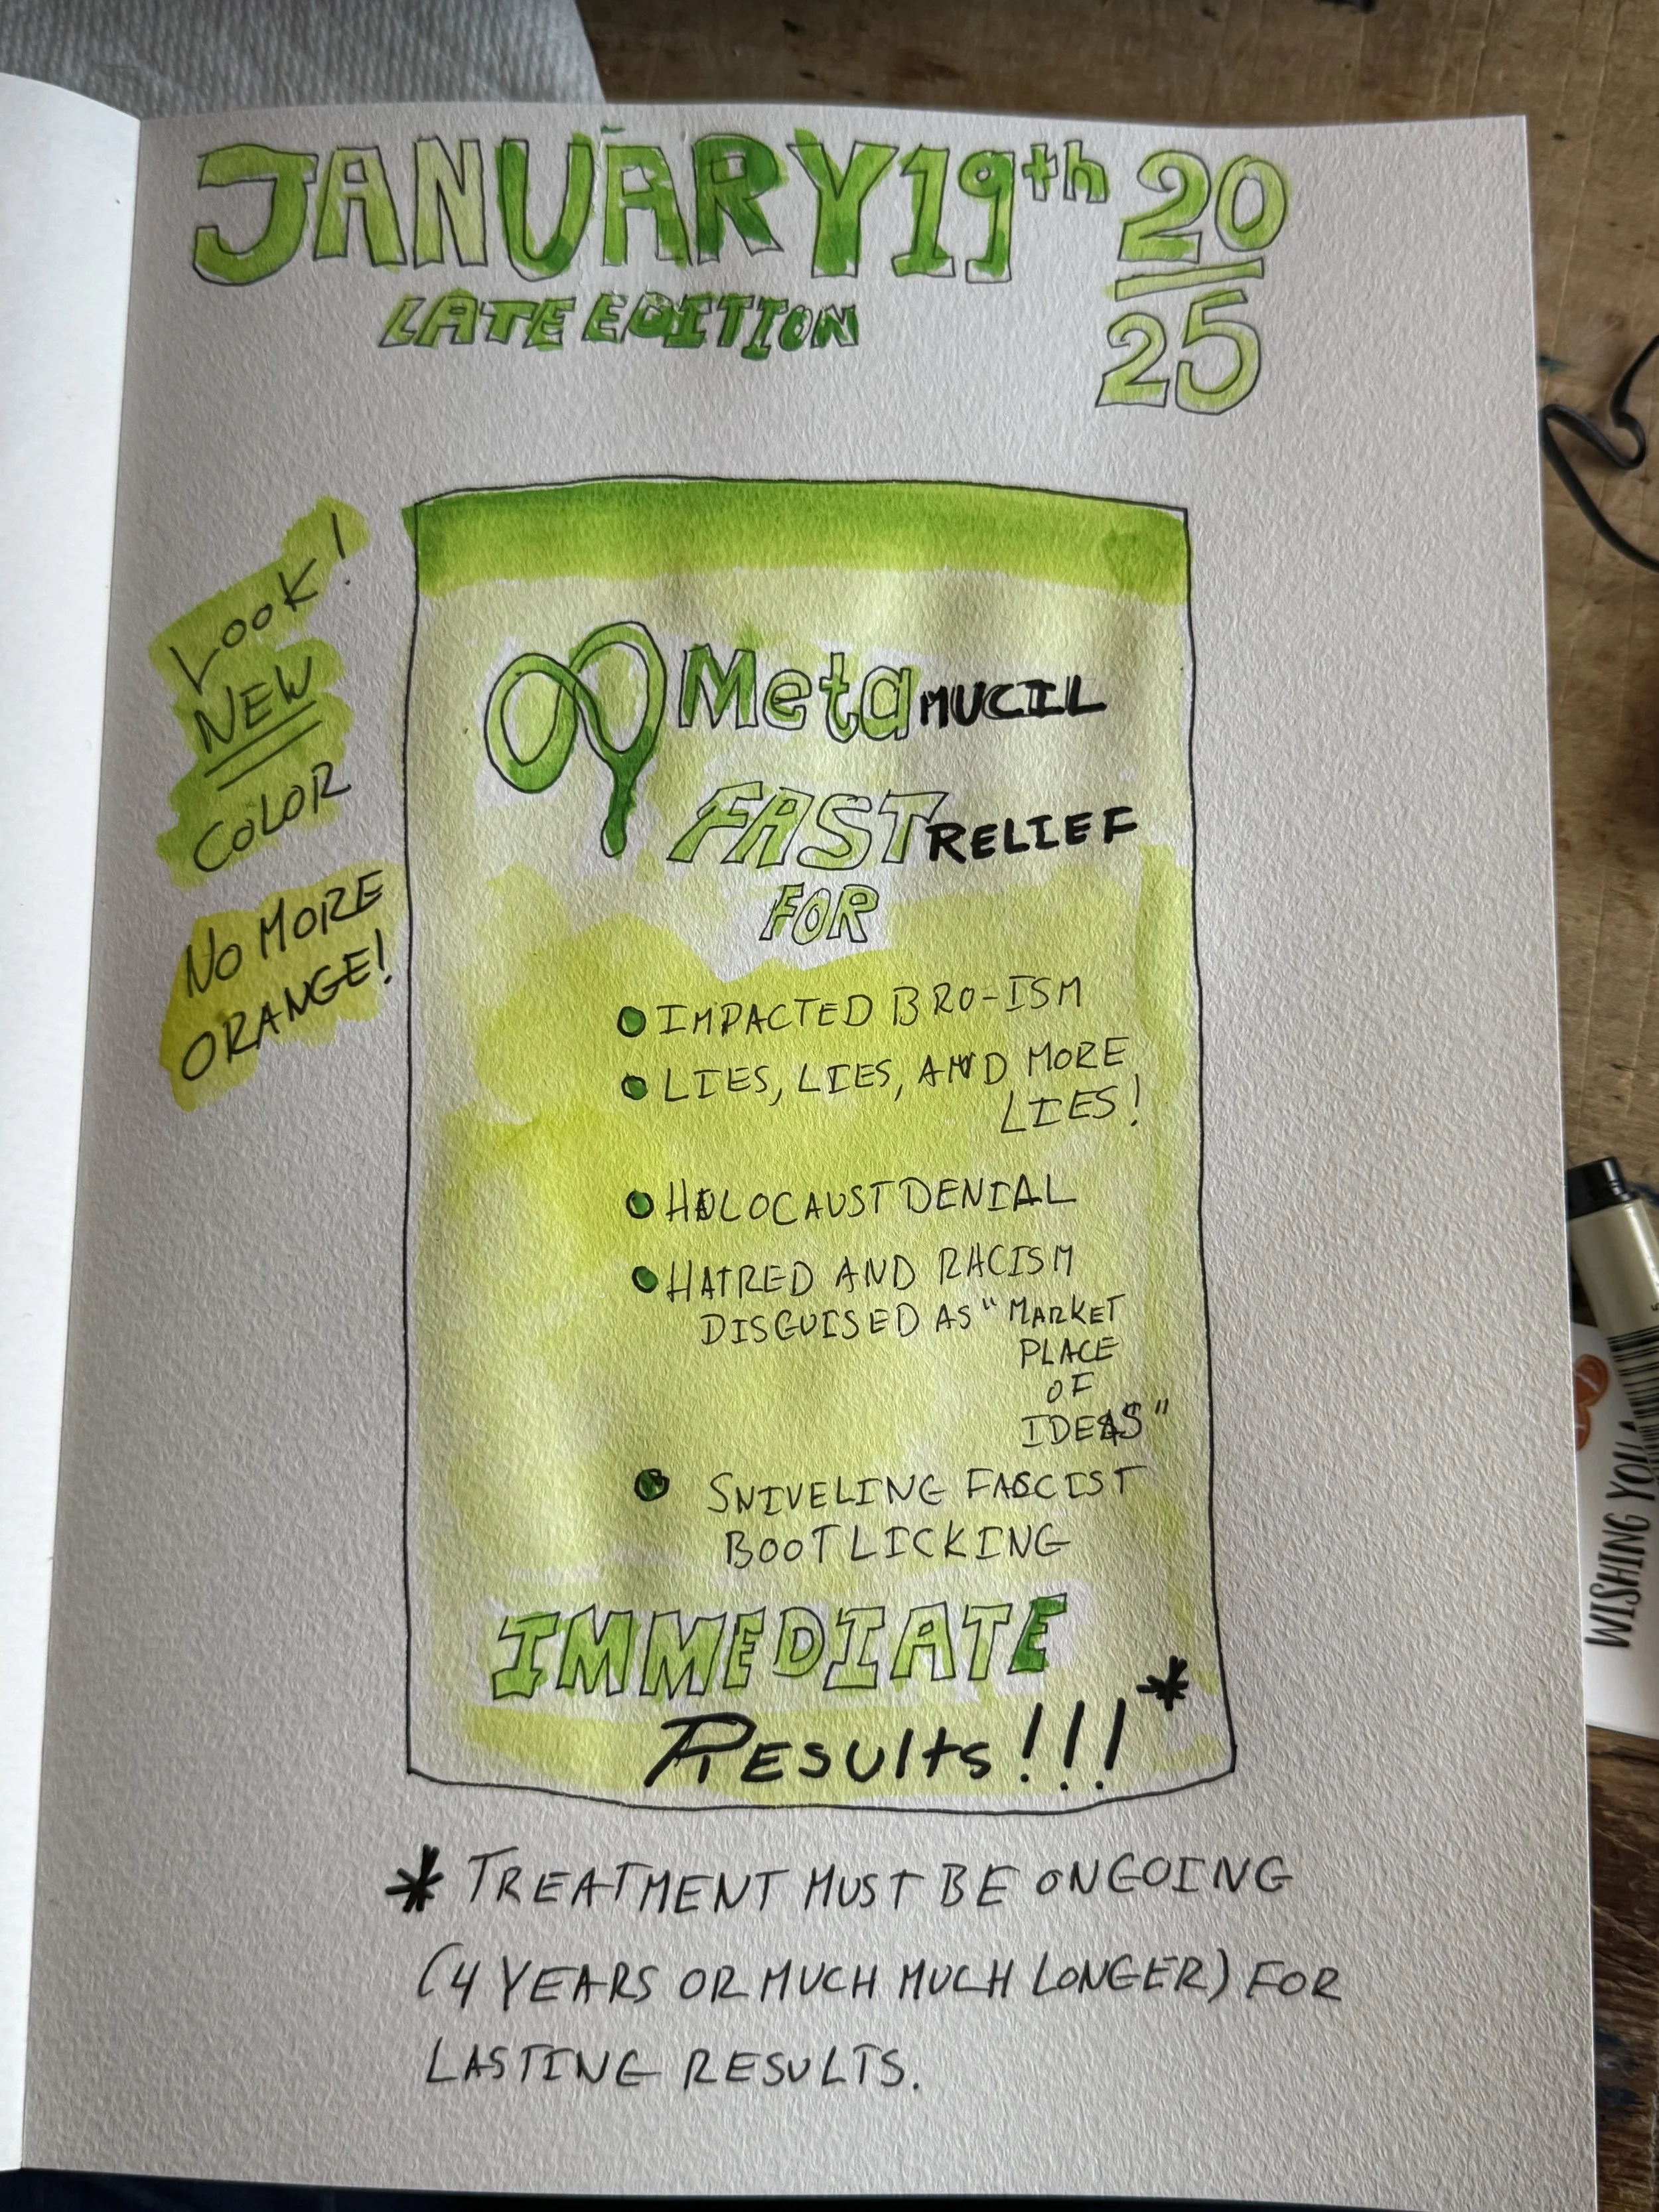 JANUARY 19th 20
25
LATE EDITION
LOOK!
NEW
COLOR
NO MORE
ORANGE!
MetaMUCIL
FAST RELIEF
FOR
IMPACTED BRO-ISM
LIES, LIES, AND MORE
LIES!
HOLOCAUST DENIAL
HATRED AND RACISM
DISGUISED AS "MARKET
PLACE
OF
IDEAS"
SNIVELING FASCIST
BOOTLICKING
IMMEDIATE
RESULTS!!!*
* TREATMENT MUST BE ONGOING
(4 YEARS OR MUCH MUCH LONGER) FOR
LASTING RESULTS.
WISHING YOU